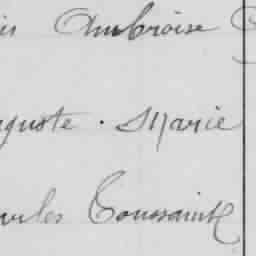 is Ambroise
guste . Marie
rles Toussaint